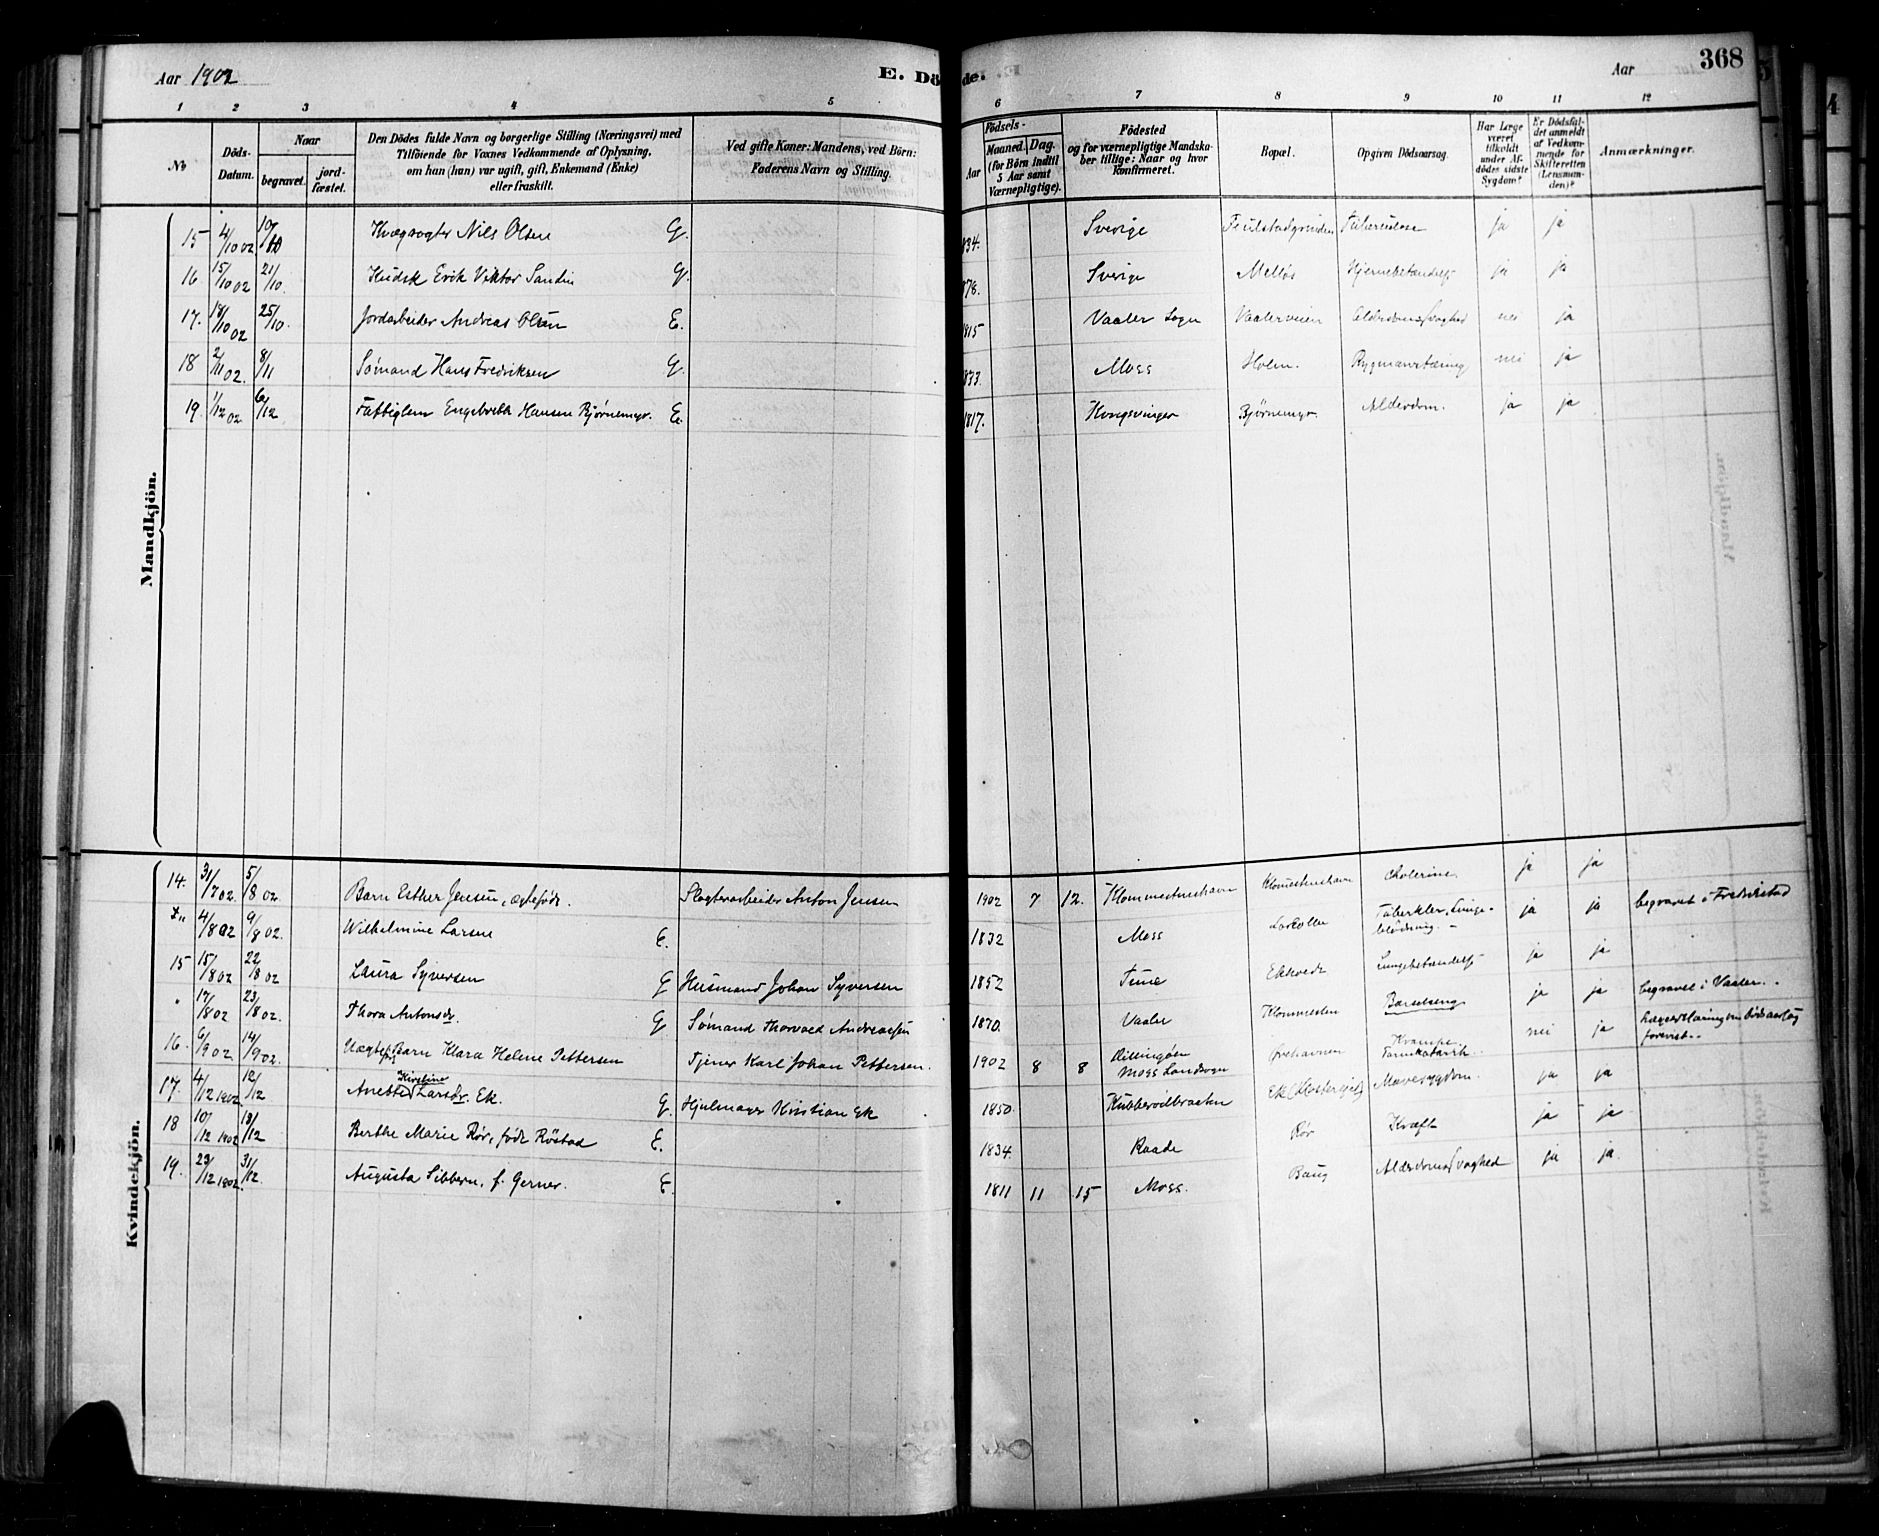 Aar 1902 E. Döde. Aar 368
1 2 3 4 5 6 7 8 9 10 11 12
No
Döds-Datum.
Naar
begravet.
jordfæstet.
Den Dödes fulde Navn og borgerlige Stilling (Næringsvei) med
Tilföiende for Voxnes Vedkommende af Oplysning,
om han (hun) var ugift, gift, Enkemand (Enke)
eller fraskilt.
Ved gifte Koner: Mandens, ved Börn:
Faderens Navn og Stilling.
Födsels-
Aar
Maaned. Dag.
(for Börn indtil
5 Aar samt
Værnepligtige).
Födested
og for værnepligtige Mandska-
ber tillige: Naar og hvor
konfirmeret.
Bopæl.
Opgiven Dödsaarsag.
Har Læge
været
tilkoldt
under Af-
dödes sidste
Sygdom?
Er Dödsfal-
det anmeldt
af Vedkom-
mende for
Skifteretten
(Lensman-
den)?
Anmærkninger.
Mandkjön.
15 4/10 02 10/10 Kvægrogter Nils Olsen G. 1834. Sverige Tuberculose ja ja
16 15/10 02 21/10. Kudsk Erik Viktor Sandin G. 1878. Sverige Melløs Hjernebetændelse ja ja
17. 18/10 02 25/10. Jordarbeider Andreas Olsen E. 1815 Vaaler Sogn Vaalerveien Alderdomssvaghed nei ja
18 2/11 02. 8/11 Sømand Hans Fredriksen G. 1833. Moss Holen. Rygmarvstæring nei ja
19. 1/12 02 6/12 Fattiglem Engebreth Hansen Bjørnemyr. E. 1817. Kongsvinger Bjørnemyr. Alderdom. ja ja
Kvindekjön.
14. 31/7 02. 5/8 02. Barn Esther Jensen, ægtefødt. Slagteriarbeider Anton Jensen 1902 7 12. Kommestenshavn Cholerine. ja ja
4/8 02 9/8 02. Wilhelmine Larsen E. 1832 Moss Tuberkler, Lungeblødning. ja ja begravet i Fredrikstad
15 15/8 02 22/8 02 Laura Syversen G Husmand Johan Syversen 1852 Tune Ekholt Lungebetændelse ja ja
" 17/8 02 23/8 02. Thora Antonsdr. G. Sømand Thorvald Andreassen 1870. Vaaler Barselseng ja ja begravet i Vaaler.
16. 6/9 02. 14/9 02. Uægtef. Barn Klara Helene Pettersen Tjener Karl Johan Pettersen. 1902 8 8 Dillingøen Moss Landsogn Ørehavnen Krampe Tarmkatarrh. nei ja Lægeerklæring om Dødsaarsag forevist.
17. 4/12 1902. 12/12 Anette Kirstine Larsdr. Ek. G. Hjulmager Kristian Ek 1850. Kubberødbraaten Ek (Klostergård) Mavesygdom. ja ja
18 10/12 1902 18/12 Berthe Marie Rør, født Røstad E. 1834. Raade Rør Kræft ja ja
19. 23/12 1902. 31/12. Augusta Sibbern, f. Gerner. E. 1811 11 15 Moss. Baug Alderdomssvaghed ja ja.